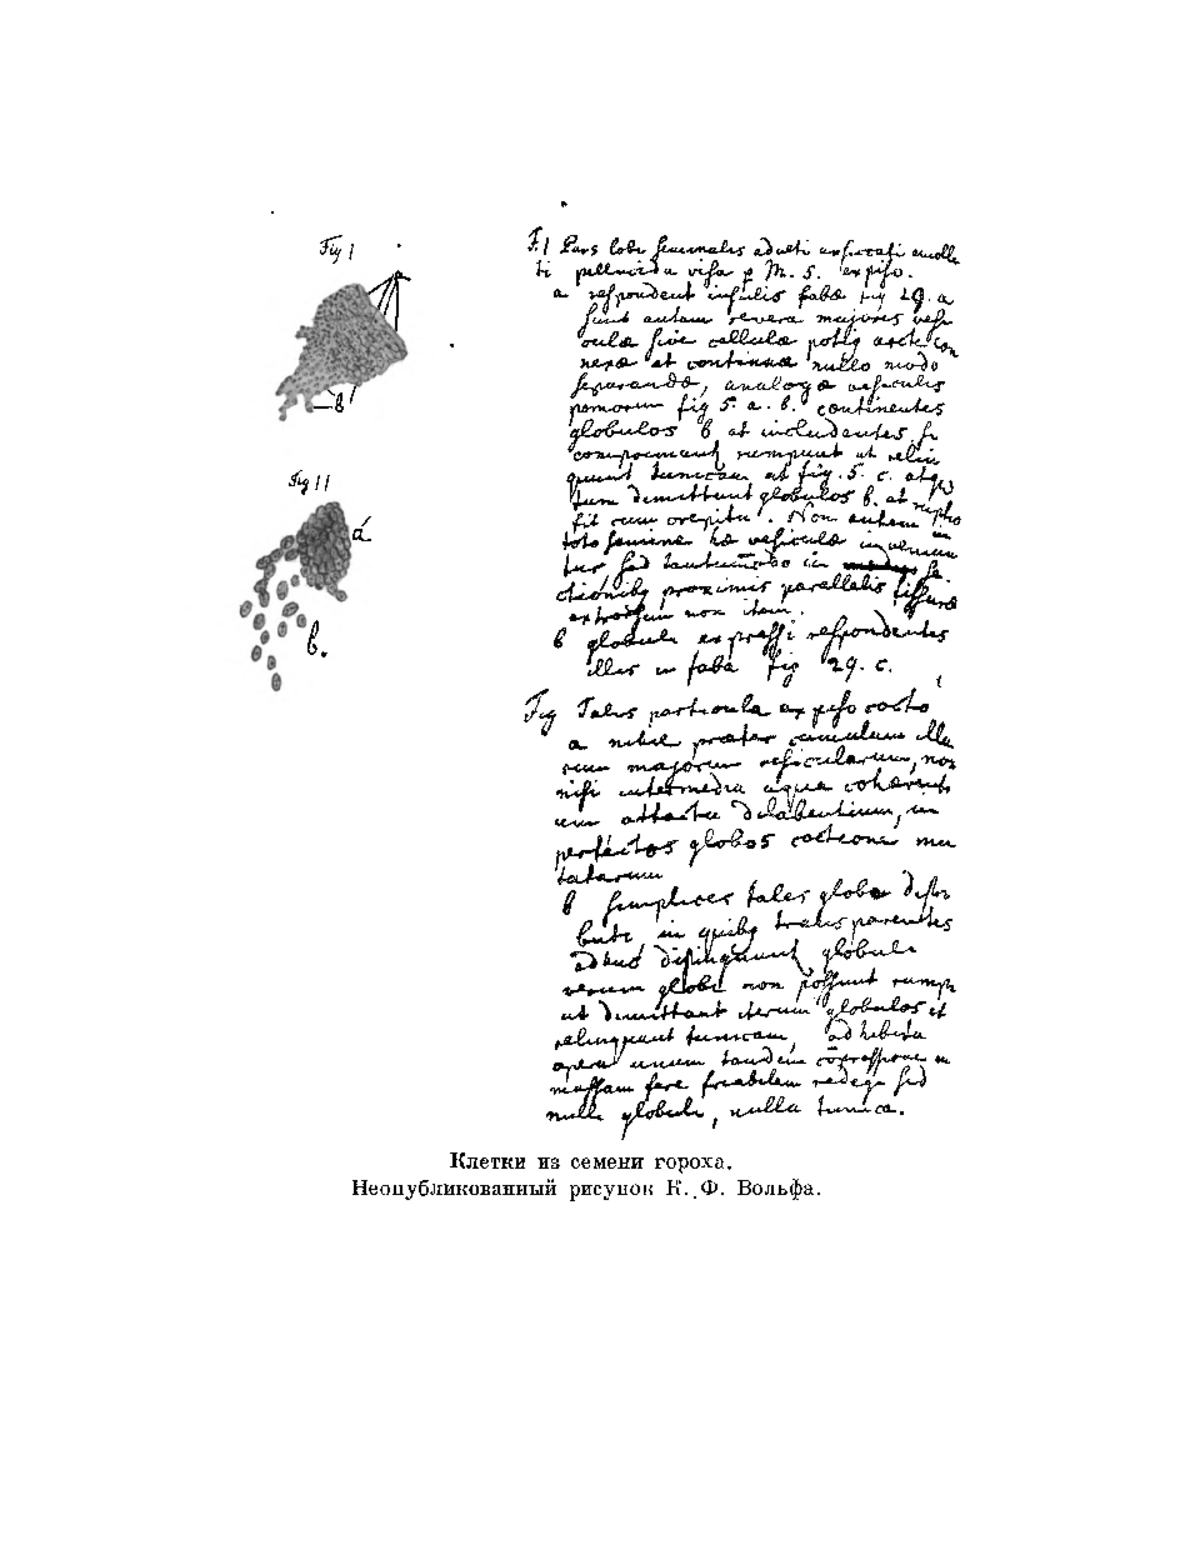 Fig 1
в
Fig 11
a
b.
F. 1 Pars lobi seminalis adulti exsiccati emolli
ti pellucida visa p M. 5. ex piso.
a respondent insulis fabæ fig 29. a
sunt autem revera majores vesi
culæ sive cellulæ potiq arcte con
nexæ et continuæ nullo modo
separandæ, analogæ vesiculis
pomorum fig 5. a. b. continentes
globulos b et includentes, si
rumpunt et relin
quunt tunicam ut fig. 5. c. atq
tum demittunt globulos b. at
fit cum crepitu. Non autem in
toto semine hæ vesiculæ inveniun
tur sed in se
ctionibq proximis parallelis fissuræ
extrorsum non item.
b globuli expressi respondentes
illis in faba fig 29. c.
Fig Talis particula ex piso cocto
a nihil præter cumulum illo
rum majorum vesicularum, non
nisi intermedia aqua cohærenti
um attactu dilabentium, in
perfectos globos coctione mu
tatarum
b simplices tales globi distri
buti, in quibq trans parentes
adhuc distinguunt globuli
verum globi non possunt rumpi
ut demittant iterum globulos et
relinquant tunicam, adhibita
opera unum tandem in
massam fere friabilem redegi sed
nulli globuli, nulla tunica.
Клетки из семени гороха.
Неопубликованный рисунок К. Ф. Вольфа.